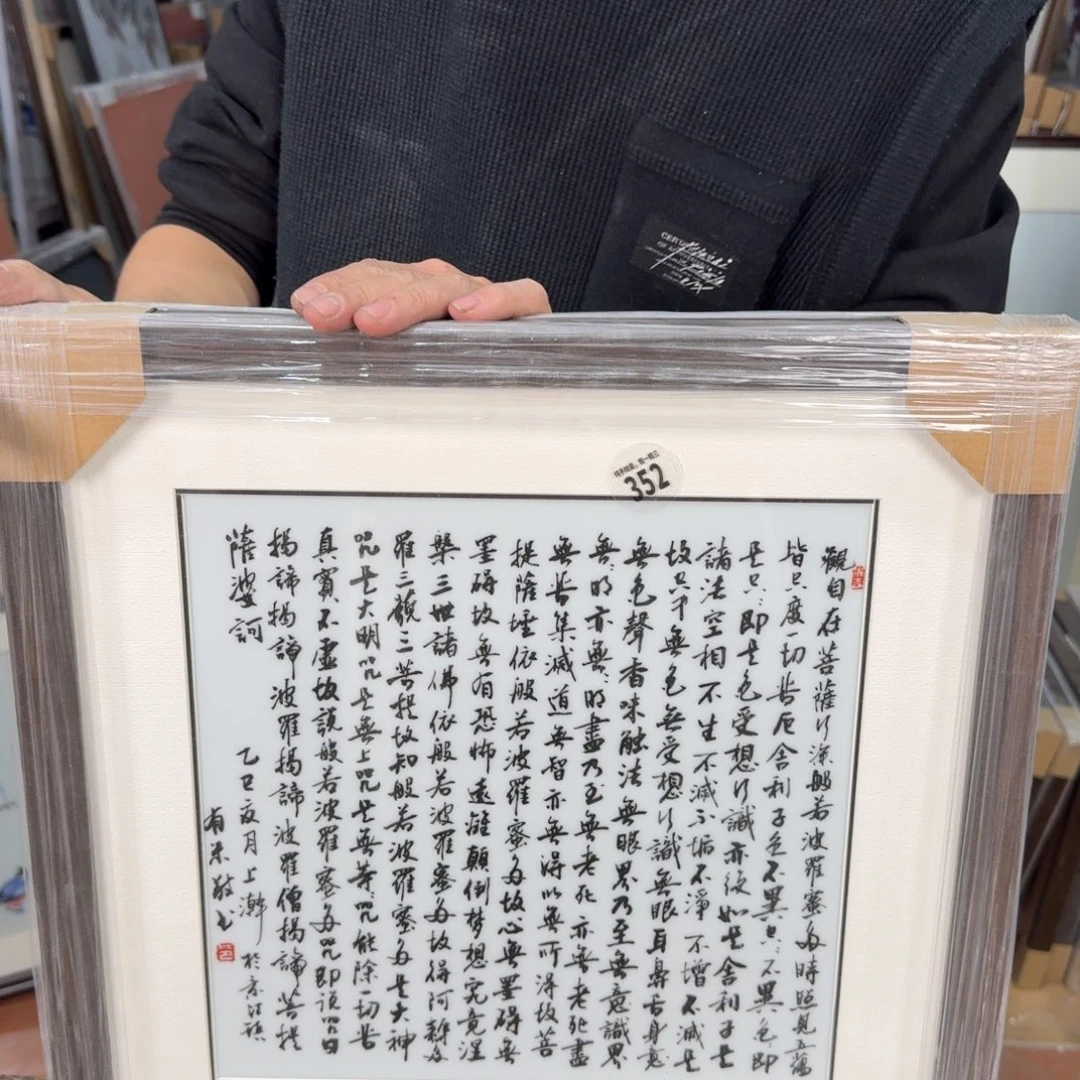 352
觀自在菩薩行深般若波羅蜜多時照見五蘊
皆空度一切苦厄舍利子色不異空空不異色色即
是空空即是色受想行識亦復如是舍利子是
諸法空相不生不滅不垢不淨不增不減是
故空中無色無受想行識無眼耳鼻舌身意
無色聲香味触法無眼界乃至無意識界
無無明亦無無明盡乃至無老死亦無老死盡
無苦集滅道無智亦無得以無所得故菩
提薩埵依般若波羅蜜多故心無罣碍無
罣碍故無有恐怖遠離顛倒梦想究竟涅
槃三世諸佛依般若波羅蜜多故得阿耨多
羅三藐三菩提故知般若波羅蜜多是大神
咒是大明咒是無上咒是無等咒能除一切苦
真實不虛故説般若波羅蜜多咒即説咒曰
揭諦揭諦波羅揭諦波羅僧揭諦菩提
薩婆訶
乙巳夏月上澣於京江
敬書